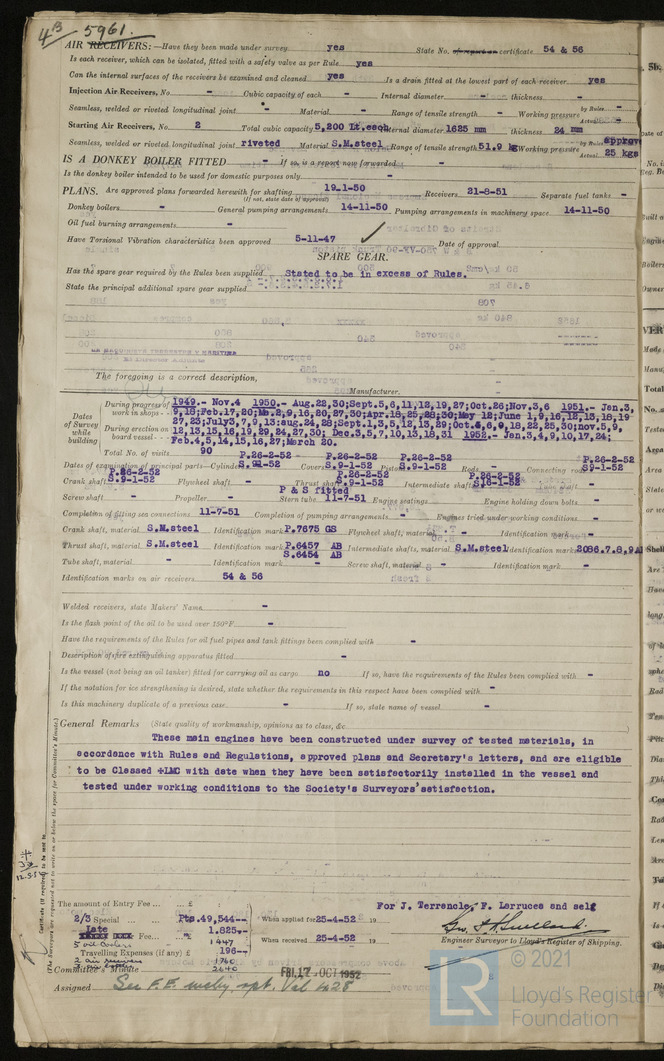 4B 5961.
AIR RECEIVERS:—Have they been made under survey yes State No. of report or certificate 54 & 56
Is each receiver, which can be isolated, fitted with a safety valve as per Rule yes
Can the internal surfaces of the receivers be examined and cleaned yes Is a drain fitted at the lowest part of each receiver yes
Injection Air Receivers, No. - Cubic capacity of each - Internal diameter - thickness -
Seamless, welded or riveted longitudinal joint - Material - Range of tensile strength - Working pressure by Rules - Actual
Starting Air Receivers, No. 2 Total cubic capacity 5,200 Lt.each Internal diameter 1625 mm thickness 24 mm
Seamless, welded or riveted longitudinal joint riveted Material S.M.steel Range of tensile strength 51.9 kg Working pressure by Rules approve Actual 25 kgs
IS A DONKEY BOILER FITTED - If so, is a report now forwarded -
Is the donkey boiler intended to be used for domestic purposes only -
PLANS. Are approved plans forwarded herewith for shafting 19-1-50 Receivers 21-8-51 Separate fuel tanks -
(If not, state date of approval)
Donkey boilers - General pumping arrangements 14-11-50 Pumping arrangements in machinery space 14-11-50
Oil fuel burning arrangements -
Have Torsional Vibration characteristics been approved 5-11-47 Date of approval
SPARE GEAR.
Has the spare gear required by the Rules been supplied Stated to be in excess of Rules.
State the principal additional spare gear supplied
The foregoing is a correct description,
Manufacturer.
Dates of Survey while building
During progress of work in shops - - 1949.- Nov.4 1950.- Aug.22,30;Sept.5,6,11,12,19,27;Oct.26;Nov.3,6 1951.- Jan.3,
9,18;Feb.17,20;Ma.2,9,16,20,27,30;Apr.18,25,28;30;May 12;June 1,9,16,12,13,18,19
27,23;July3,7,9,13;aug.24,28;Sept.1,3,5,12,13,29;Oct.4,6,9,18,22,25,30;nov.5,9,
During erection on board vessel - - 12,13,15,16,19,29,24,27,30; Dec.3,5,7,10,13,18,31 1952.- Jan.3,4,9,10,17,24;
Feb.4,5,14,15,16,27;March 20.
Total No. of visits 90
Dates of examination of principal parts—Cylinders P.26-2-52 S.9-1-52 Covers P.26-2-52 S.9-1-52 Pistons P.26-2-52 S.9-1-52 Rods - Connecting rods P.26-2-52 S9-1-52
Crank shaft P.26-2-52 S.9-1-52 Flywheel shaft - Thrust shaft P.26-2-52 S.9-1-52 Intermediate shafts P.26-2-52 S16-1-52 -
Screw shaft - Propeller - Stern tube P & S fitted 11-7-51 Engine seatings - Engine holding down bolts -
Completion of fitting sea connections 11-7-51 Completion of pumping arrangements - Engines tried under working conditions -
Crank shaft, material S.M.steel Identification mark P.7675 GS Flywheel shaft, material - Identification mark -
Thrust shaft, material S.M.steel Identification mark P.6457 AB S.6454 AB Intermediate shafts, material S.M.steel Identification marks 2086.7.8,9A
Tube shaft, material - Identification mark - Screw shaft, material - Identification mark -
Identification marks on air receivers 54 & 56
Welded receivers, state Makers' Name -
Is the flash point of the oil to be used over 150°F -
Have the requirements of the Rules for oil fuel pipes and tank fittings been complied with -
Description of fire extinguishing apparatus fitted -
Is the vessel (not being an oil tanker) fitted for carrying oil as cargo no If so, have the requirements of the Rules been complied with -
If the notation for ice strengthening is desired, state whether the requirements in this respect have been complied with -
Is this machinery duplicate of a previous case - If so, state name of vessel -
General Remarks (State quality of workmanship, opinions as to class, &c.)
These main engines have been constructed under survey of tested materials, in
accordance with Rules and Regulations, approved plans and Secretary's letters, and are eligible
to be Classed +LMC with date when they have been satisfactorily installed in the vessel and
tested under working conditions to the Society's Surveyors' satisfaction.
Certificate (if required) to be sent to
(The Surveyors are requested not to write on or below the space for Committee's Minute.)
The amount of Entry Fee ... £
2/3 Special ... Pts.49,544--
Late Fee ... 1.825,-
5 oil coolers 1447
Travelling Expenses (if any) £ 196--
2 air receivers 1740
2640
When applied for 25-4-52 19
When received 25-4-52 19
For J. Terrencle, F. Larruces and self
Engineer Surveyor to Lloyd's Register of Shipping.
Committee's Minute FRI.17 OCT 1952
Assigned See F.E. mchy rpt.
© 2021
LR
Lloyd's Register
Foundation